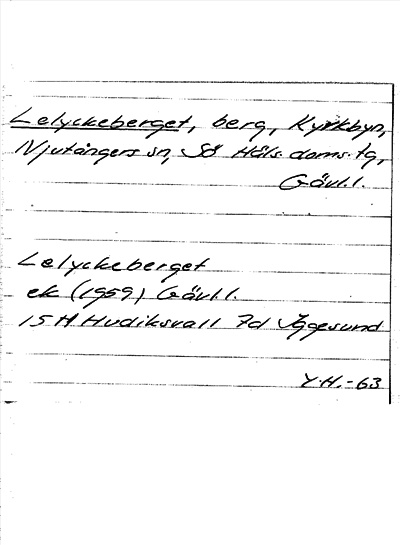 Lelyckeberget, berg, Kyrkbyn,
Njutångers sn, Sö Häls. doms. tg,
Gävl.l.
Lelyckeberget
ek (1959) Gävl.l.
15 H Hudiksvall 7d Iggesund
Y.H.-63